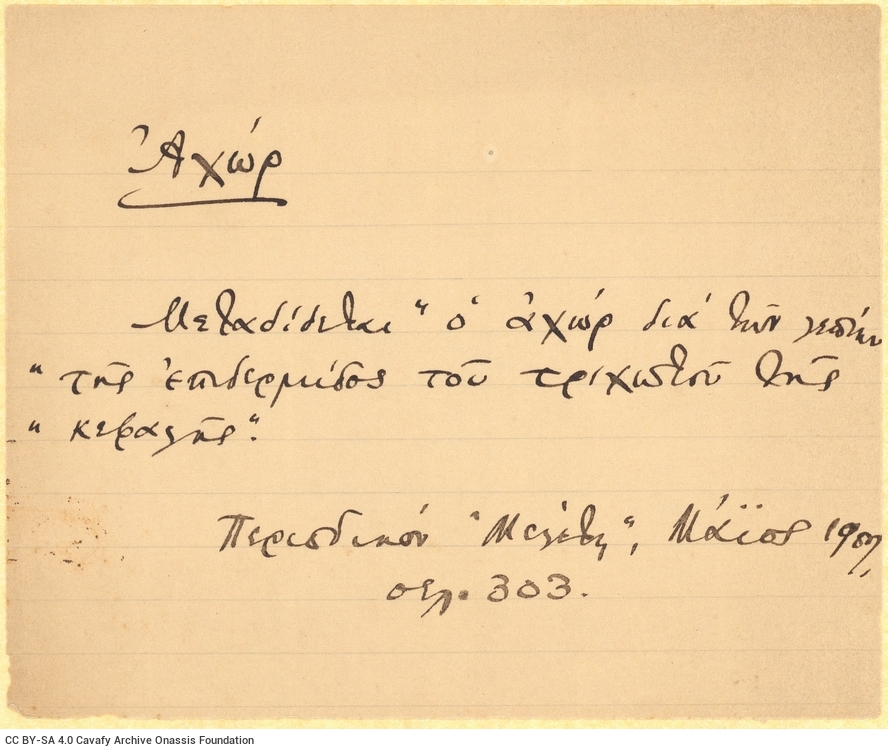 Ἀχώρ
Μεταδίδεται “ὁ ἀχώρ διὰ τῶν λεπίων
“ τῆς ἐπιδερμίδος τοῦ τριχωτοῦ τῆς
“ κεφαλῆς”.
Περιοδικόν “Μελέτη”, Μάϊος 1907,
σελ. 303.
CC BY-SA 4.0 Cavafy Archive Onassis Foundation